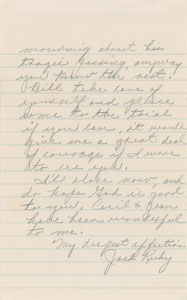 mourning about his
tragic passing, anyway
you know the rest.
Bill take care of
yourself and please
come to the trial
if you can, it would
give me a great deal
of courage if I were
to see you.
I'll close now, and
do hope God is good
to you, Cecil & Jean
have been wonderful
to me.
My deepest affection
Jack Ruby